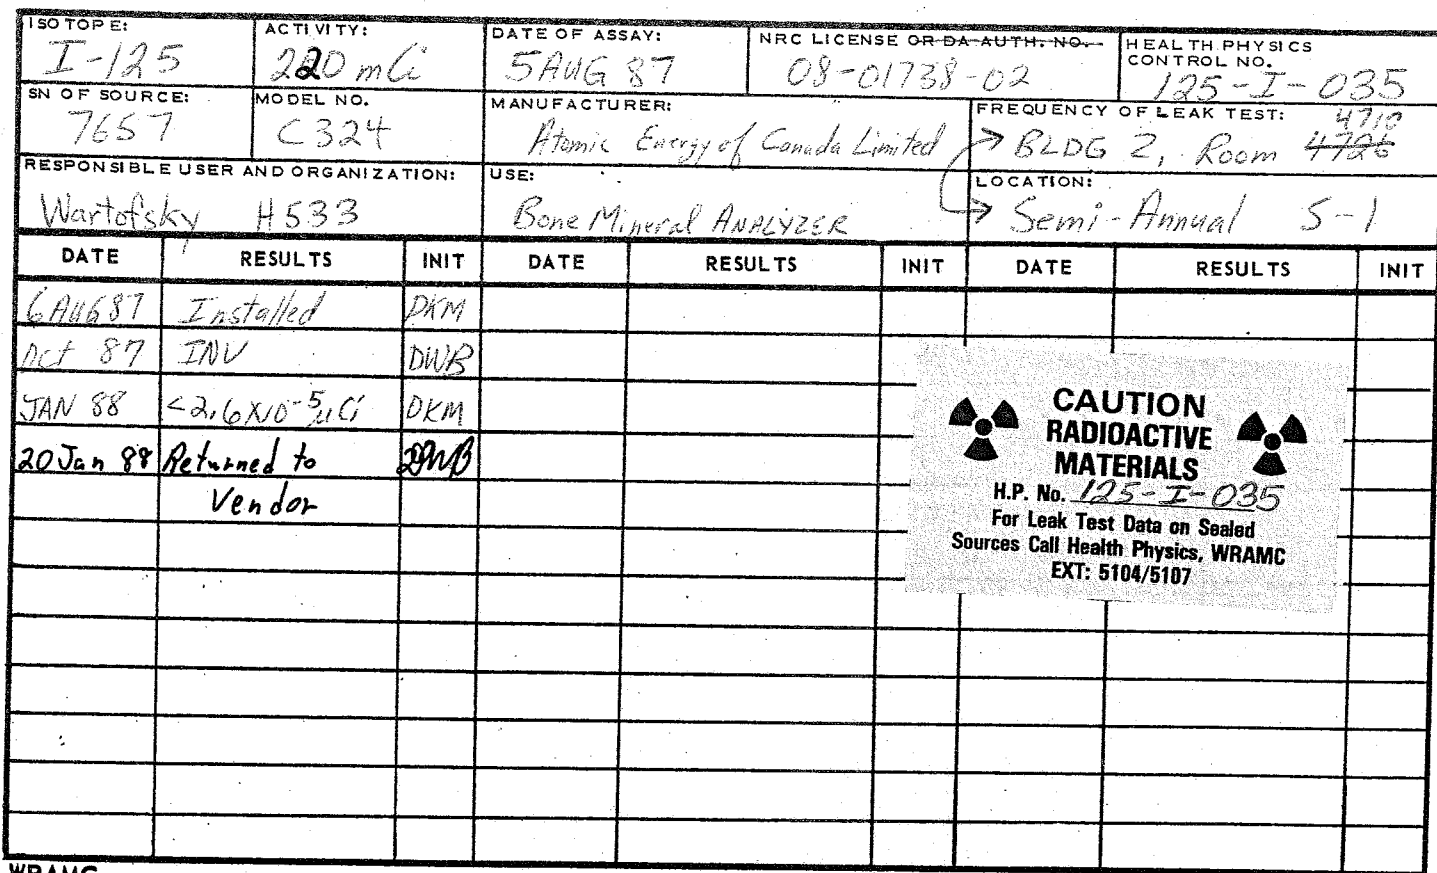 ISOTOPE:
I-125
ACTIVITY:
220 mCi
DATE OF ASSAY:
5 AUG 87
NRC LICENSE OR DA AUTH. NO.
08-01738-02
HEALTH PHYSICS
CONTROL NO.
125-I-035
SN OF SOURCE:
7657
MODEL NO.
C324
MANUFACTURER:
Atomic Energy of Canada Limited
FREQUENCY OF LEAK TEST:
4710
BLDG 2, Room 4726
RESPONSIBLE USER AND ORGANIZATION:
Wartofsky H533
USE:
Bone Mineral ANALYZER
LOCATION:
Semi-Annual S-1
DATE RESULTS INIT DATE RESULTS INIT DATE RESULTS INIT
6 AUG 87 Installed DKM
Oct 87 INV DWB
JAN 88 <2.6X10-5 µCi DKM
20 Jan 88 Returned to DWB
Vendor
CAUTION
RADIOACTIVE
MATERIALS
H.P. No. 125-I-035
For Leak Test Data on Sealed
Sources Call Health Physics, WRAMC
EXT: 5104/5107
WRAMC